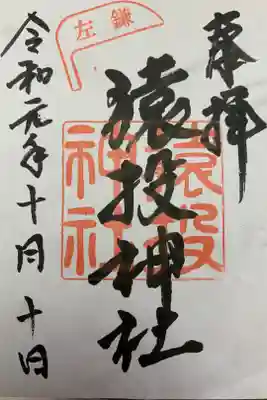 奉拝
猿投神社
猿投
神社
左鎌
令和元年十月十日